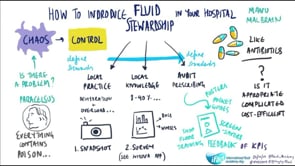 HOW TO INDRODUCE FLUID IN YOUR HOSPITAL
STEWARDSHIP
MANU
MALBRAIN
CHAOS
CONTROL
define
standards
define
standards
LIKE
ANTIBIOTICS
IS THERE
A PROBLEM?
PARACELSUS
EVERYTHING
CONTAINS
POISON...
LOCAL
PRACTICE
LOCAL
KNOWLEDGE
AUDIT
PRESCRIBING
1. SNAPSHOT
2. SURVEY
POSTERS
POCKET
GUIDES
SCREEN
SAVERS
TRAINING
FEEDBACK OF KPIS
?
IS IT
APPROPRIATE
COMPLICATED
COST-EFFICIENT